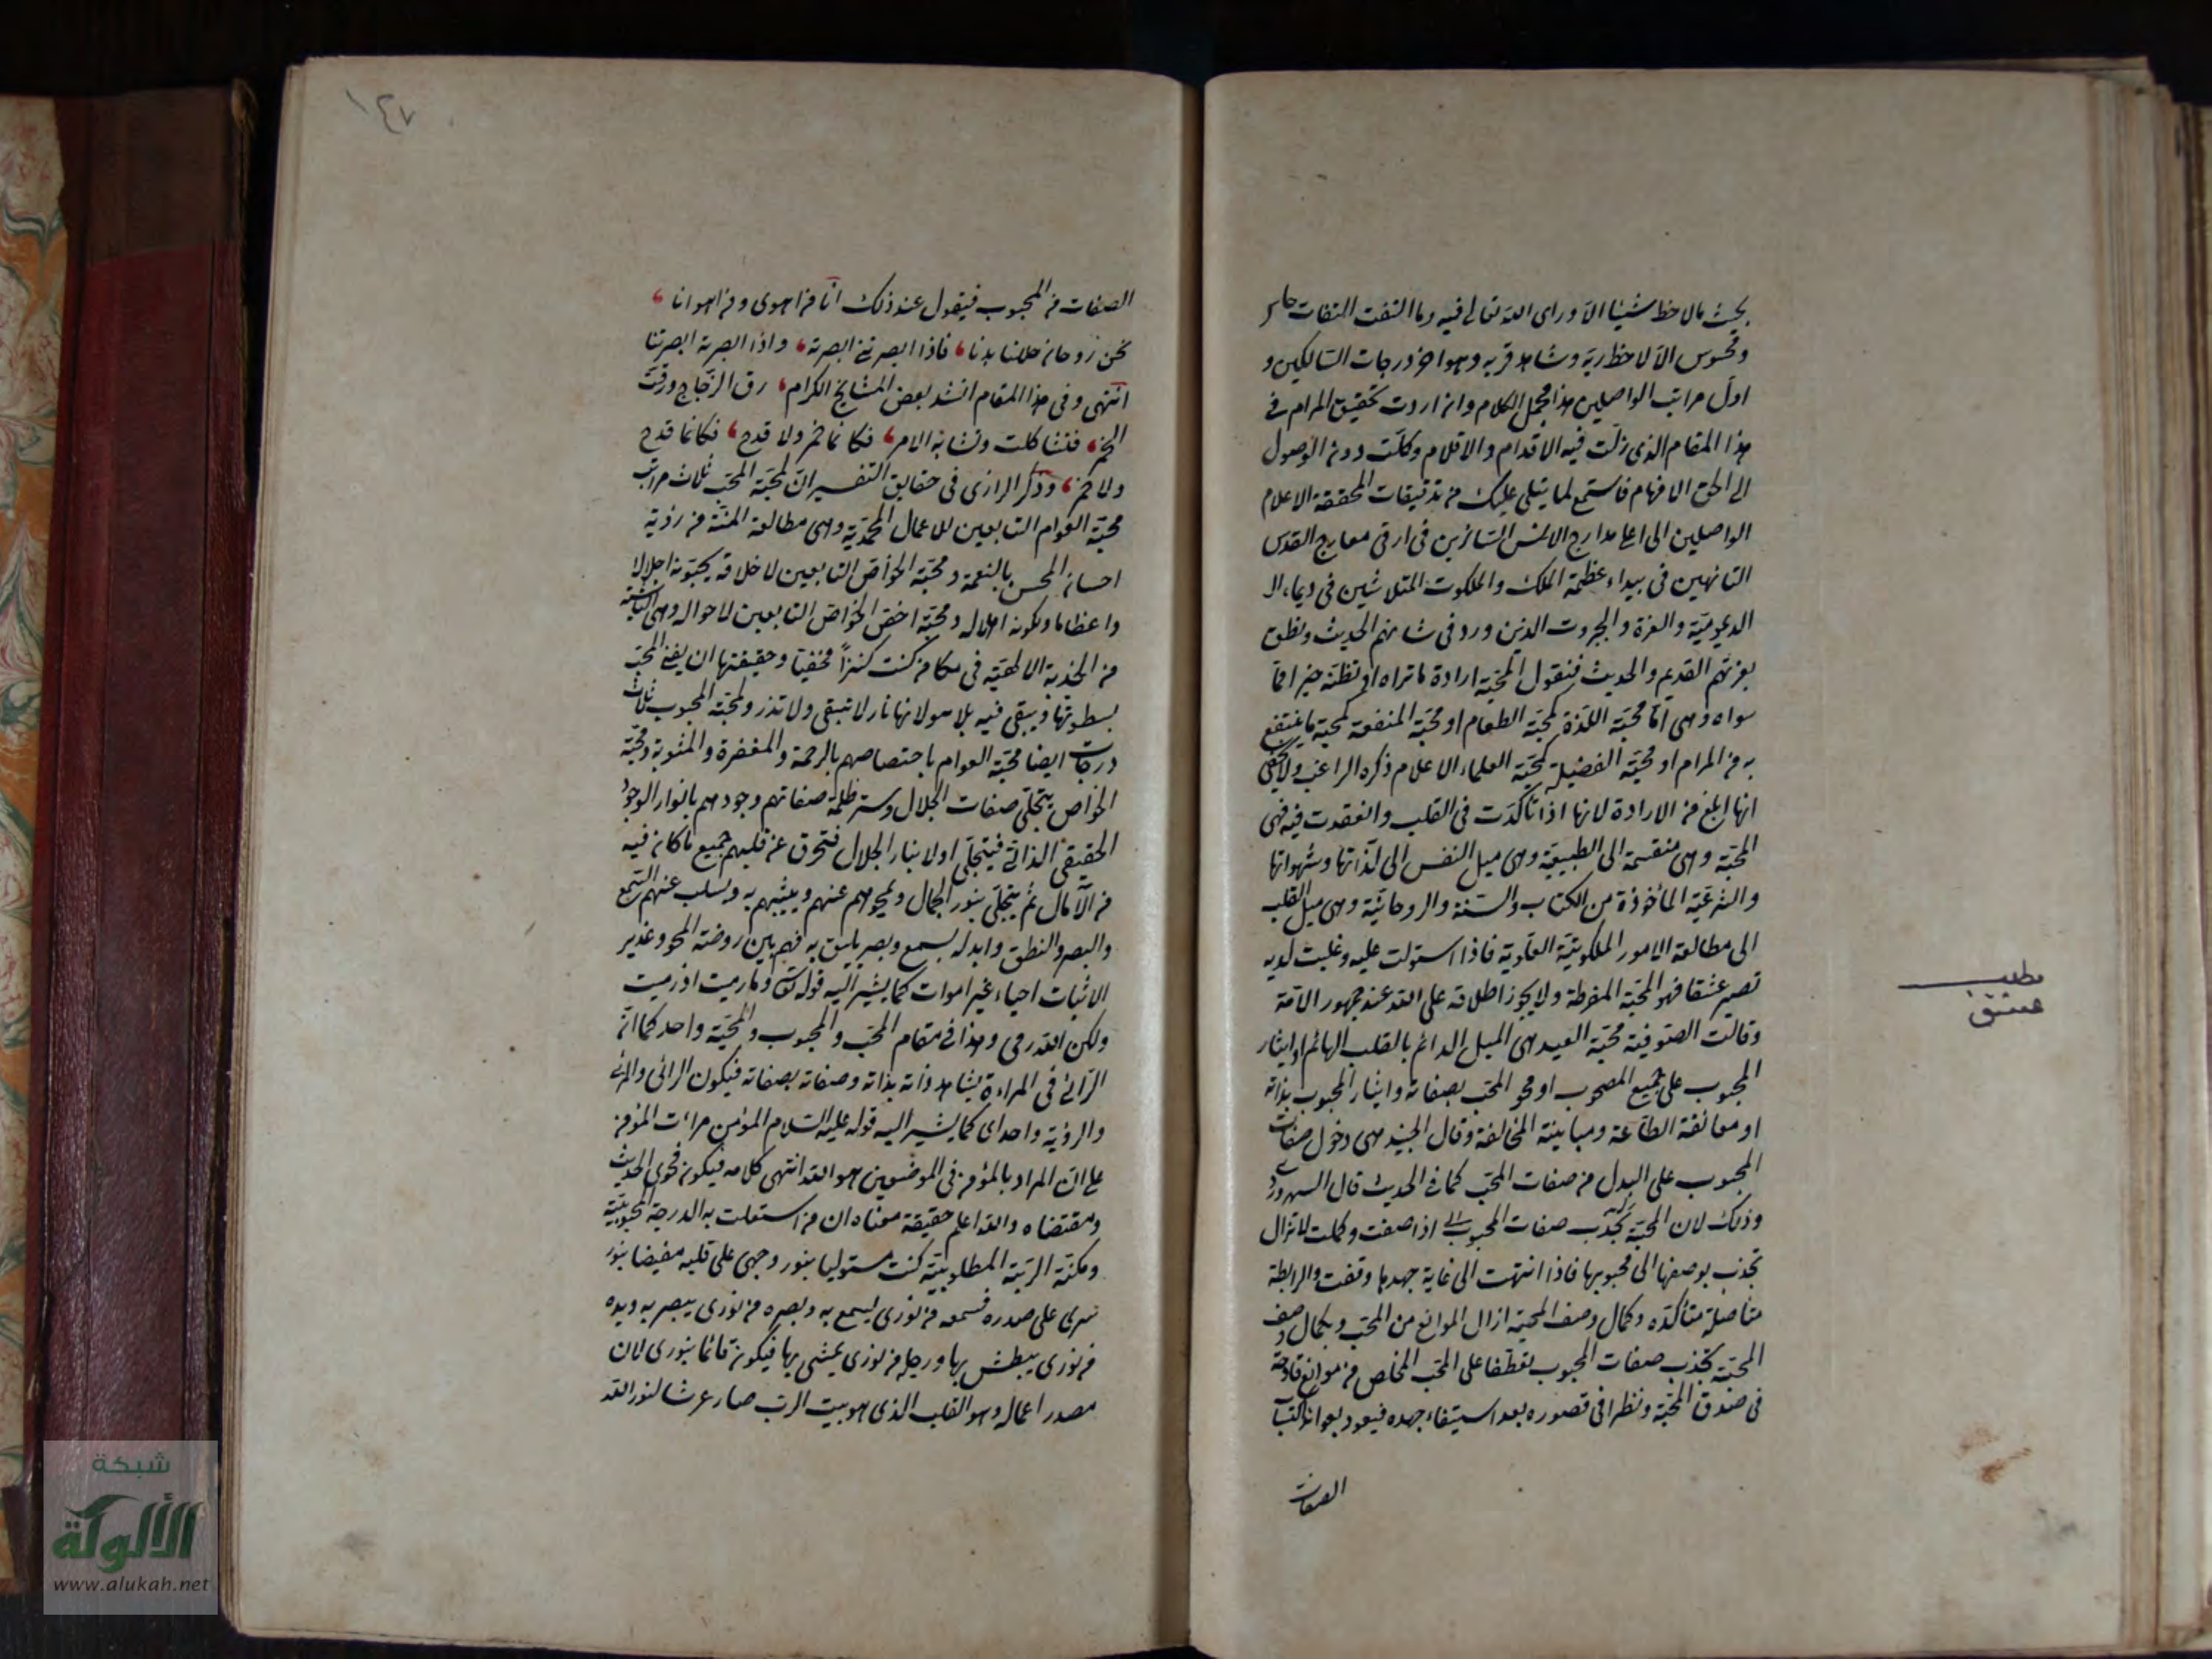 بحيث ما لاحظ شيئا الا وراى الله تعالى فيه وما التفت التفات حاس
ومحسوس الا لاحظ ربه وشاهد قربه وهو اخر درجات السالكين و
اول مراتب الواصلين هذا مجمل الكلام وان اردت تحقيق المرام في
هذا المقام الذي زلت فيه الاقدام والاقلام وكلت دون الوصول
الى الحق الافهام فاستمع لما يتلى عليك من تدقيقات المحققة الاعلام
الواصلين الى اعلى مدارج الانس السائرين في ارقى معارج القدس
التائهين في بيداء عظمة الملك والملكوت المتلاشين في
الديمومية والعزة والجبروت الذين ورد في شانهم الحديث ونطق
بعزتهم القديم والحديث فنقول المحبة ارادة ما تراه او تظنه خيرا فما
سواه وهى اما محبة اللذة كمحبة الطعام او محبة المنفعة كمحبة ما ينتفع
به من المرام او محبة الفضيلة كمحبة العلماء الاعلام ذكره الراغب ولا يخفى
انها ابلغ من الارادة لانها اذا تأكدت في القلب وانعقدت فيه فهى
المحبة وهى منقسمة الى الطبيعية وهى ميل النفس الى لذاتها وشهواتها
والشرعية المأخوذة من الكتاب والسنة والروحانية وهى ميل القلب
الى مطالعة الامور الملكوتية العلوية فاذا استولت عليه وغلبت لديه
تصير عشقا فهو المحبة المفرطة ولا يجوز اطلاقه على الله عند جمهور الائمة
وقالت الصوفية محبة العبد هى الميل الدائم بالقلب الهائم او ايثار
المحبوب على جميع المصحوب او محو المحب بصفاته وايثار المحبوب بذاته
او معانقة الطاعة ومباينة المخالفة وقال الجنيد هى دخول صفات
المحبوب على البدل من صفات المحب كما في الحديث قال السهروردي
وذلك لان المحبة تجذب صفات المحبوب اذا صفت وكملت لا تزال
تجذب بوصفها الى محبوبها فاذا انتهت الى غاية جهدها وقفت والرابطة
متأصلة متأكدة وكمال وصف المحبة ازال الموانع من المحب وبكمال وصف
المحبة تجذب صفات المحبوب تعطفا على المحب المخلص من موانع قادحة
في صدق المحبة ونظرا في قصوره بعد استيفاء جهده فيعود بفوائد اكتساب
الصفات
مطلب
عشق
١٤٧
الصفات من المحبوب فيقول عند ذلك انا من اهوى ومن اهوى انا
نحن روحان حللنا بدنا فاذا ابصرتني ابصرته واذا ابصرته ابصرتنا
انتهى وفى هذا المقام انشد بعض المشايخ الكرام رق الزجاج ورقت
الخمر فتشاكلت وتشابه الامر فكانما خمر ولا قدح فكانما قدح
ولا خمر وذكر الرازى فى حقايق التفسير ان لمحبة المحب ثلاث مراتب
محبة العوام التابعين للاعمال المحمدية وهى مطالعة المنة من رؤية
احسان المحسن بالنعمة ومحبة الخواص التابعين لاخلاقه يحبونه اجلالا
واعظاما ولكونه اهلا له ومحبة اخص الخواص التابعين لاحواله وهى الناشئة
من الجذبة الالهية فى مكامن كنت كنزا مخفيا وحقيقتها ان يفنى المحب
بسطوتها ويبقى فيه بلا هو لانها نار لا تبقى ولا تذر ولمحبة المحبوب ثلاث
درجات ايضا محبة العوام باختصاصهم بالرحمة والمغفرة والمثوبة ومحبة
الخواص بتجلى صفات الجلال وستر ظلمة صفاتهم وجودهم بانوار الوجود
الحقيقى الذاتى فيتجلى اولا بنار الجلال فتحرق عن قلبهم جميع ما كان فيه
من الآمال ثم يتجلى بنور الجمال ويمحوهم عنهم ويثبتهم به ويسلب عنهم السمع
والبصر والنطق وابدله بسمع وبصر يليق به فهم بين روضة المحو وغدير
الاثبات احياء غير اموات كما يشير اليه قوله تعالى وما رميت اذ رميت
ولكن الله رمى وهذا فى مقام المحب والمحبوب والمحبة واحد كما ان
الرائى فى المراءة يشاهد ذاته بذاته وصفاته بصفاته فيكون الرائى والمرئى
والرؤية واحدا كما يشير اليه قوله عليه السلام المؤمن مرات المؤمن
على ان المراد بالمؤمن فى الموضعين هو الله انتهى كلامه فيكون فحوى الحديث
ومقتضاه والله اعلم حقيقة معناه ان من استعلت به الدرجة المحبوبية
ومكنته الرتبة المطلوبية كنت مستوليا بنور وجهى على قلبه مفيضا بنور
سرى على صدره فسمعه من نورى يسمع به وبصره من نورى يبصر به ويده
من نورى يبطش بها ورجله من نورى يمشى بها فيكون قائما بنورى لان
مصدر اعماله وهو القلب الذى هو بيت الرب صار عرشا لنور الله
شبكة
الألوكة
www.alukah.net